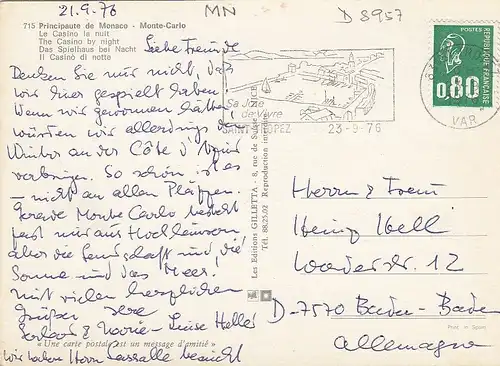 21.9.76
MN
D 8957
715 Principaute de Monaco - Monte-Carlo
Le Casino la nuit
The Casino by night
Das Spielhaus bei Nacht
Il Casino di notte
Liebe Freunde
Denken Sie nur nicht, daß
wir hier gespielt haben!
Wenn wir gewonnen hätten
würden wir allerdings den
Winter an der Côte d'Azur
verbringen. So schön ist es
– nicht an allen Plätzen.
Gerade Monte Carlo besteht
fast nur aus Hochhäusern
aber die Landschaft und die
Sonne und das Meer!
Mit vielen herzlichen
Grüßen Ihre
& Marie-Luise Heller
wir haben Herrn Lassalle besucht
« Une carte postale est un message d'amitié »
Les Editions GILLETTA - 8, rue de Suisse
Reproduction
Sa Joie
de Vivre
SAINT-TROPEZ
23-9-76
VAR
POSTES
0,80
REPUBLIQUE FRANÇAISE
Herrn & Frau
Heinz Hell
12
D-7570 Baden-Baden
Allemagne